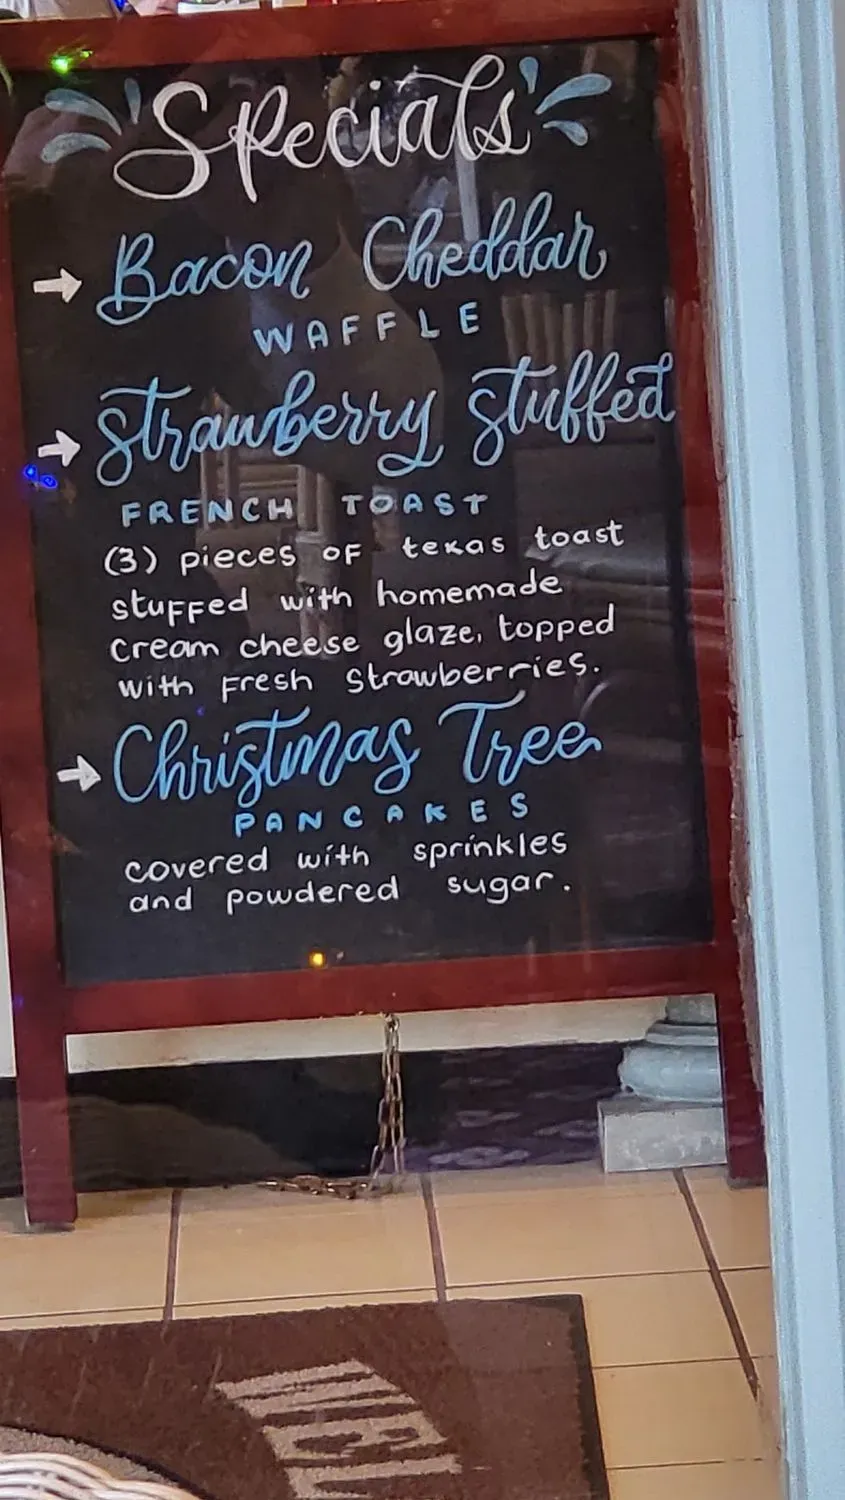 Specials
Bacon Cheddar
WAFFLE
Strawberry Stuffed
FRENCH TOAST
(3) pieces of texas toast
stuffed with homemade
cream cheese glaze, topped
with fresh strawberries.
Christmas Tree
PANCAKES
covered with sprinkles
and powdered sugar.
WEL